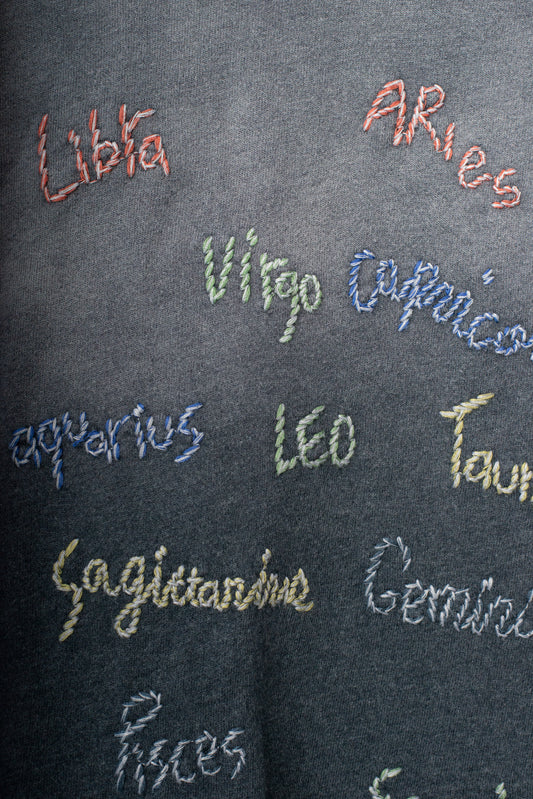 Libra
Aries
Virgo
Capricor
aquarius
LEO
Taur
Sagittarius
Gemini
Pisces